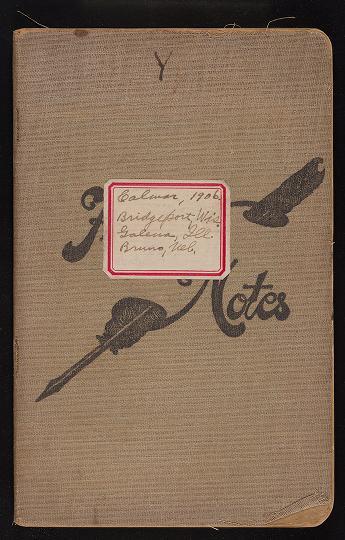 Y
Calmar, 1906
Bridgeport, Wis.
Galena, Ill.
Bruno, Neb.
Notes